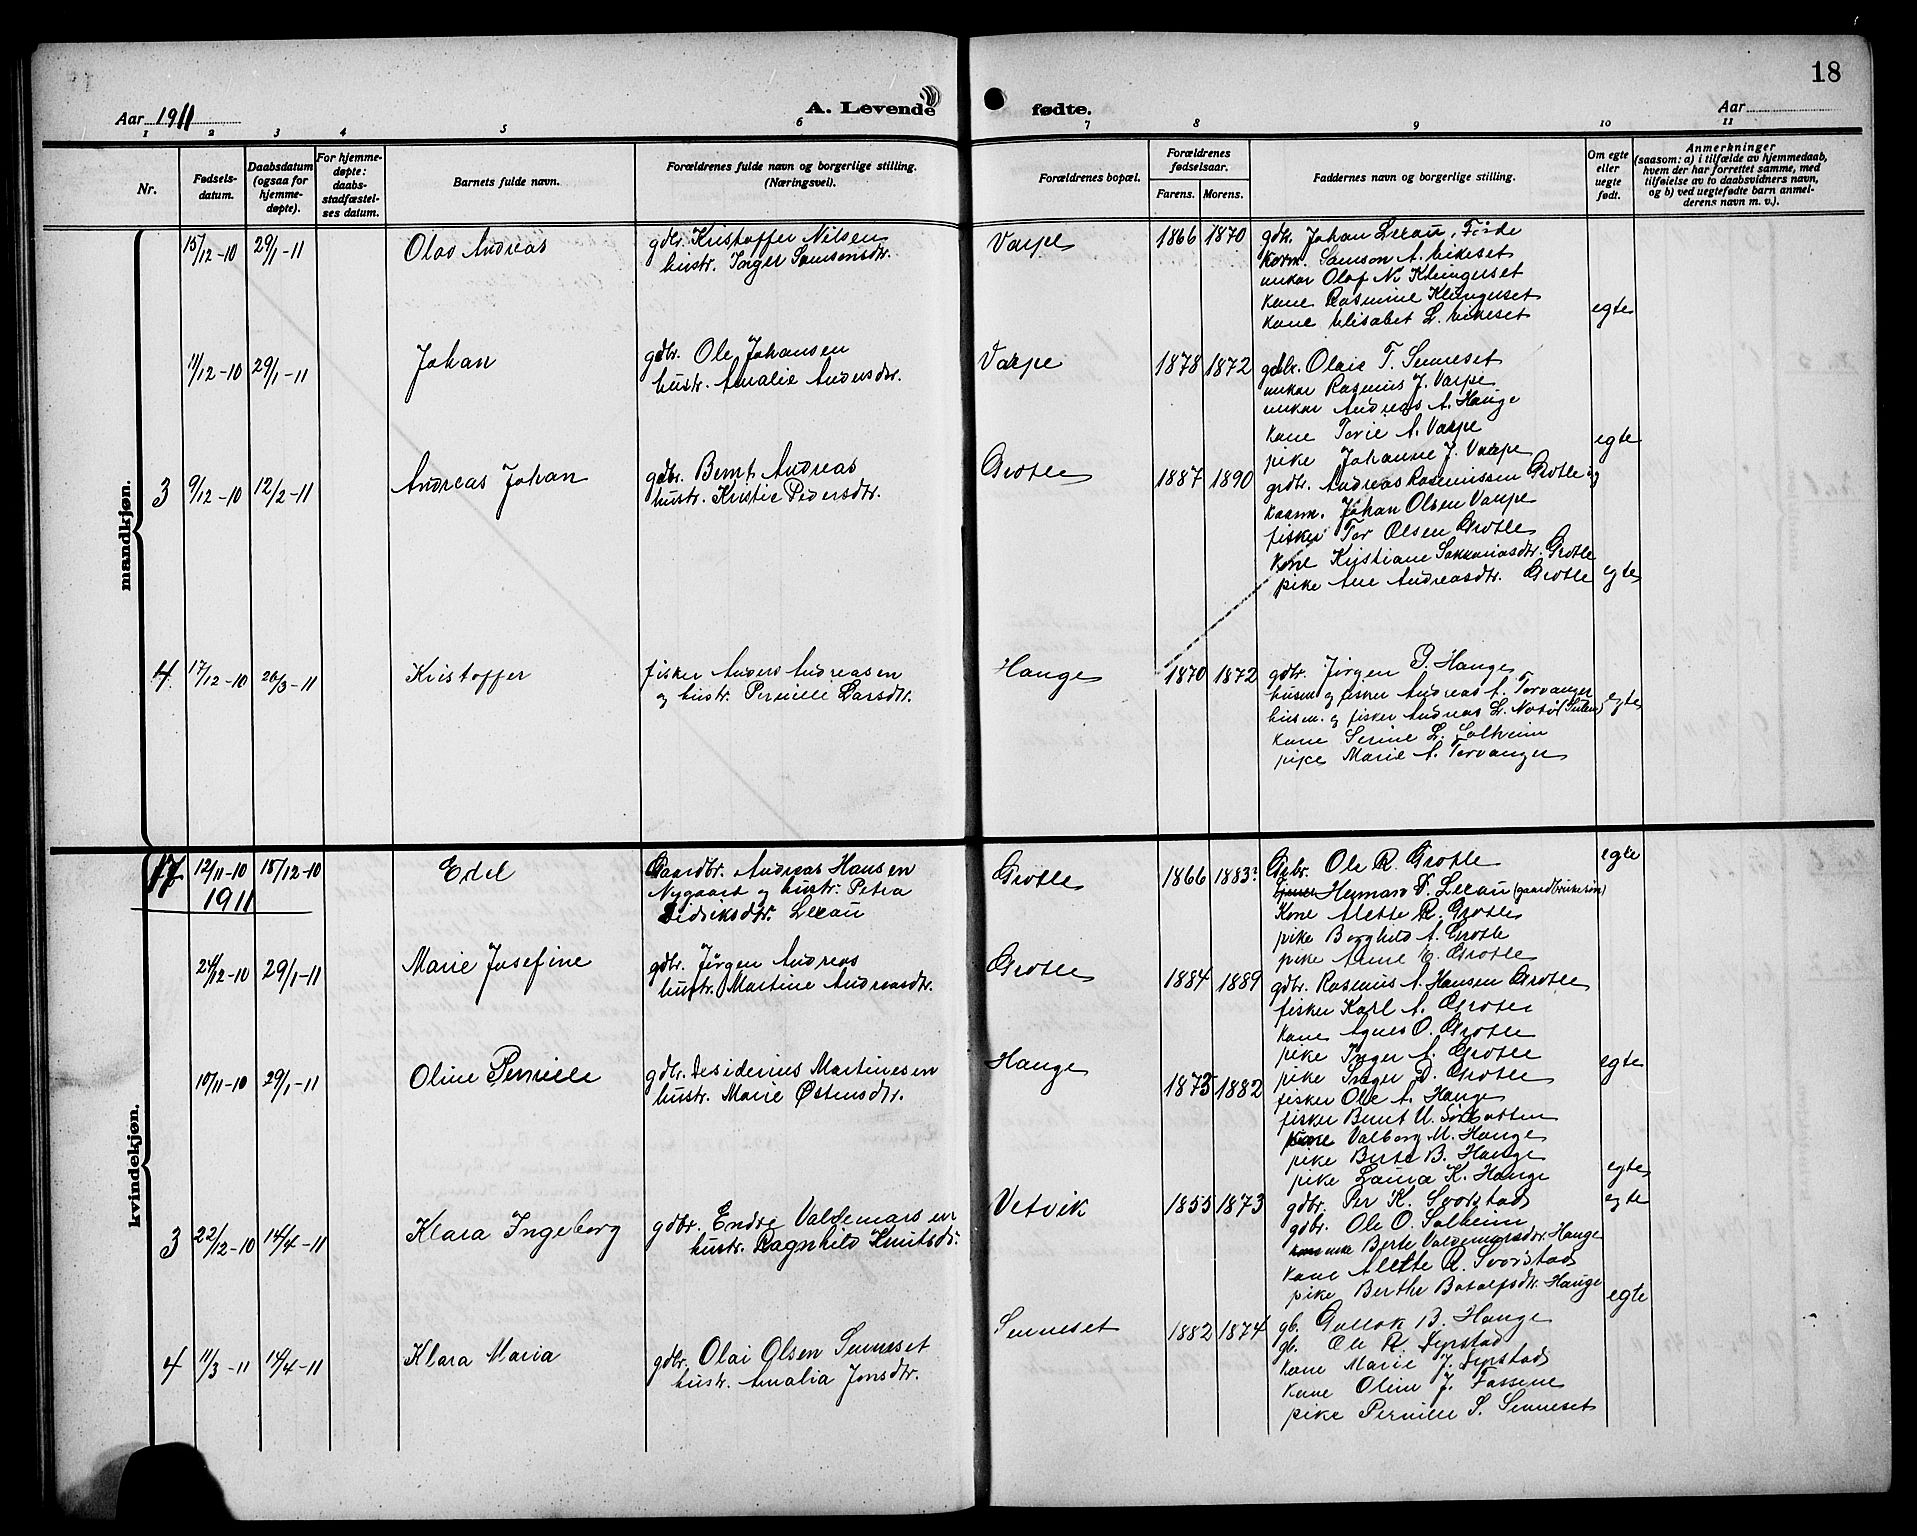 18
Aar 1911
A. Levende fødte.
Aar
1 2 3 4 5 6 7 8 9 10 11
Nr.
Fødsels-
datum.
Daabsdatum
(ogsaa for
hjemme-
døpte).
For hjemme-
døpte:
daabs-
stadfæstel-
ses datum.
Barnets fulde navn.
Forældrenes fulde navn og borgerlige stilling.
(Næringsvei).
Forældrenes bopæl.
Forældrenes
fødselsaar.
Farens. Morens.
Faddernes navn og borgerlige stilling.
Om egte
eller
uegte
født.
Anmerkninger
(saasom: a) i tilfælde av hjemmedaab,
hvem der har forrettet samme, med
tilføielse av to daabsvidners navn,
og b) ved uegtefødte barn anmel-
derens navn m. v.).
mandkjøn.
15/12-10 29/1-11 Olav Andreas
gdbr. Kristoffer Nilsen
hustr. Inger Samsonsdtr.
Varpe 1866 1870
gdbr. Johan Leeau, Førde
Samson A.
unkar Olaf N. Klingerset
kone Rasmine Klingerset
kone Elisabet L.
egte
11/12-10 29/1-11 Johan
gdbr. Ole Johansen
hustr. Amalie Andersdtr.
Varpe 1878 1872
gdbr. Olais T. Senneset
unkar Rasmus J. Varpe
unkar Andreas A. Hauge
kone A. Varpe
pike Johanne J. Varpe
egte
3 9/12-10 12/2-11 Andreas Johan
gdbr. Bernt Andreas
hustr. Kristie Pedersdtr.
Grotle 1887 1890
grdbr. Andreas Rasmussen Grotle og
Johan Olsen Varpe
fisker Tor Olsen Grotle
Kone Kristiane Sakkariasdtr. Grotle
pike Ane Andreasdtr. Grotle
egte
4 17/12-10 26/3-11 Kristoffer
fisker Anders Andreasen
og hustr. Pernille Larsdtr.
Hauge 1870 1872
gdbr. Jørgen P. Hauge
husm og fisker Andreas A. Torvanger
husm. og fisker Andreas L.
kone Serine L. Solheim
pike Marie A. Torvanger
egte
kvindekjøn.
17 12/11-10 15/12-10 Edel
Gaardbr. Andreas Hansen
Nygaard og hustr. Petra
Didriksdtr. Leeau
Grotle 1866 1883?
Gdbr. Ole R. Grotle
Herman D. Leeau (gaardbrukersøn)
Kone Alette R. Grotle
pike Borghild A. Grotle
pike Anne E. Grotle
egte
1911
24/12-10 29/1-11 Marie Josefine
gdbr. Jørgen Andreas
hustr. Martine Andreasdtr.
Grotle 1884 1889
gdbr. Rasmus A. Hansen Grotle
fisker Karl A. Grotle
kone Agnes O. Grotle
pike Inger A. Grotle
pike Inger D. Grotle
egte
10/11-10 29/1-11 Oline Pernille
gdbr. Desiderius Martinesen
hustr. Marie Østensdtr.
Hauge 1873 1882
fisker Ole A. Hauge
fisker Bernt U.
Valborg M. Hauge
pike Berte B. Hauge
pike Laura K. Hauge
egte
3 22/12-10 14/4-11 Klara Ingeborg
gdbr. Endre Valdemarsen
hustr. Ragnhild Knutsdtr.
Vetvik 1855 1873
gdbr. Per K. Svorstad
gdbr. Ole O. Solheim
Berte Valdemarsdtr. Hauge
kone Alette R. Svorstad
pike Berthe Botolfsdtr. Hauge
egte
4 11/3-11 14/4-11 Klara Maria
gdbr. Olai Olsen Senneset
hustr. Amalia Jonsdtr.
Senneset 1882 1874
gb. B. Hauge
gb. Ole R. Dyrstad
kone Marie J. Dyrstad
kone Oline J.
pike Pernille S. Senneset
egte